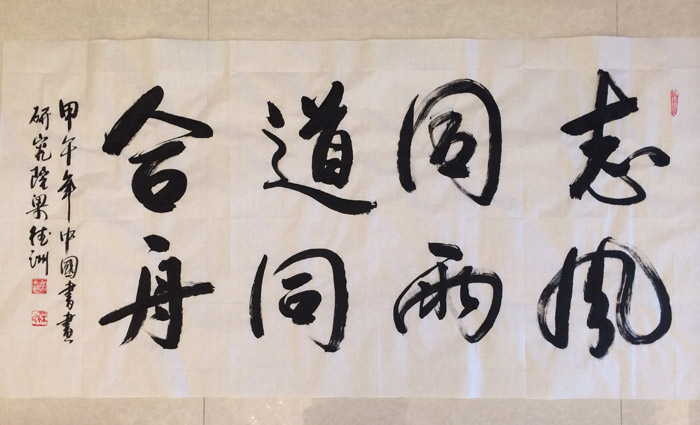 志同道合
风雨同舟
甲午年中國書畫
研究院梁洲